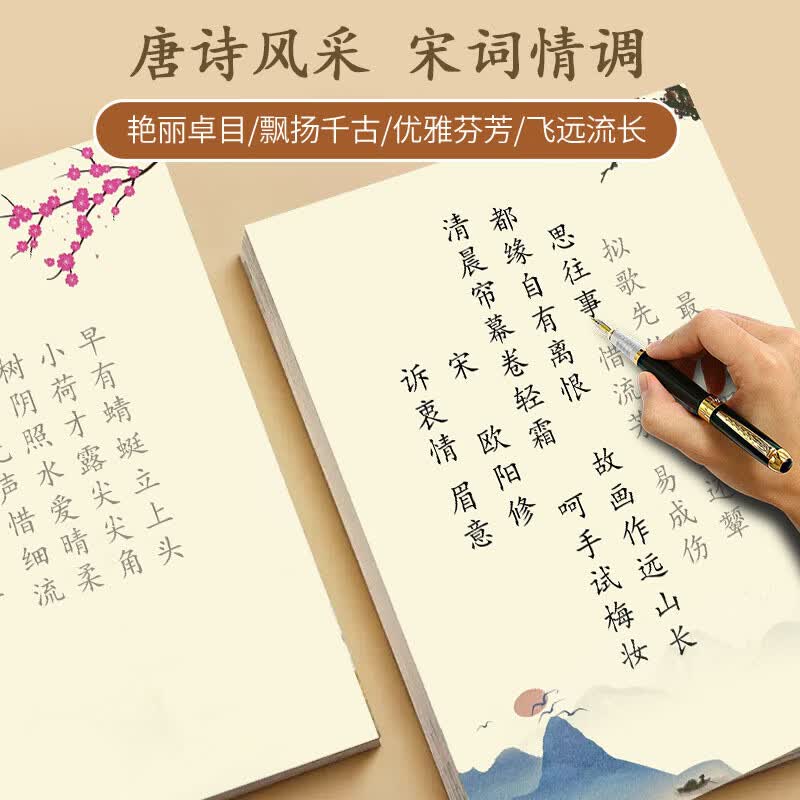 唐诗风采 宋词情调
艳丽卓目/飘扬千古/优雅芬芳/飞远流长
早有蜻蜓立上头
小荷才露尖尖角
树阴照水爱晴柔
声惜细流
诉衷情 眉意
宋 欧阳修
清晨帘幕卷轻霜 呵手试梅妆
都缘自有离恨 故画作远山长
思往事 惜流芳 易成伤
拟歌先 还颦
最